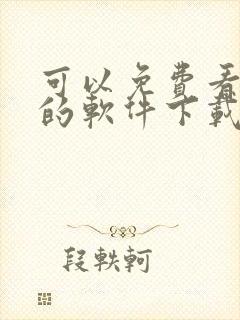 可以免費看
的軟件下載
段軼軻